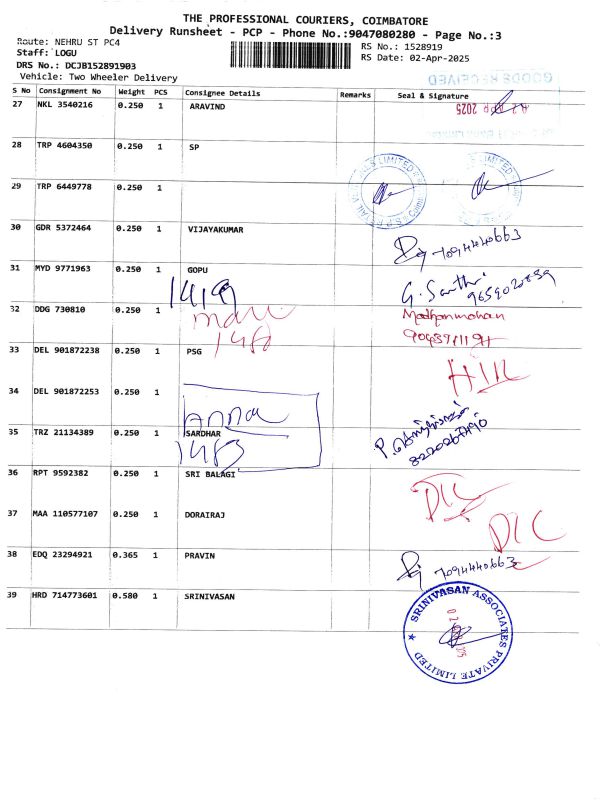 THE PROFESSIONAL COURIERS, COIMBATORE
Delivery Runsheet - PCP - Phone No.:9047080280 - Page No.:3
Route: NEHRU ST PC4
RS No.: 1528919
Staff: LOGU
RS Date: 02-Apr-2025
DRS No.: DCJB152891903
Vehicle: Two Wheeler Delivery
GOODS RECEIVED
S No Consignment No Weight PCS Consignee Details Remarks Seal & Signature
27 NKL 3540216 0.250 1 ARAVIND
APR 2025
28 TRP 4604350 0.250 1 SP
29 TRP 6449778 0.250 1
30 GDR 5372464 0.250 1 VIJAYAKUMAR
7094440663
31 MYD 9771963 0.250 1 GOPU
1419
G. Santhi
32 DDG 730810 0.250 1
Madhanmohan
33 DEL 901872238 0.250 1 PSG
34 DEL 901872253 0.250 1
Anna
35 TRZ 21134389 0.250 1 SARDHAR
1483
36 RPT 9592382 0.250 1 SRI BALAGI
DLC
37 MAA 110577107 0.250 1 DORAIRAJ
DLC
38 EDQ 23294921 0.365 1 PRAVIN
7094440663
39 HRD 714773601 0.580 1 SRINIVASAN
SRINIVASAN ASSOCIATES PRIVATE LIMITED